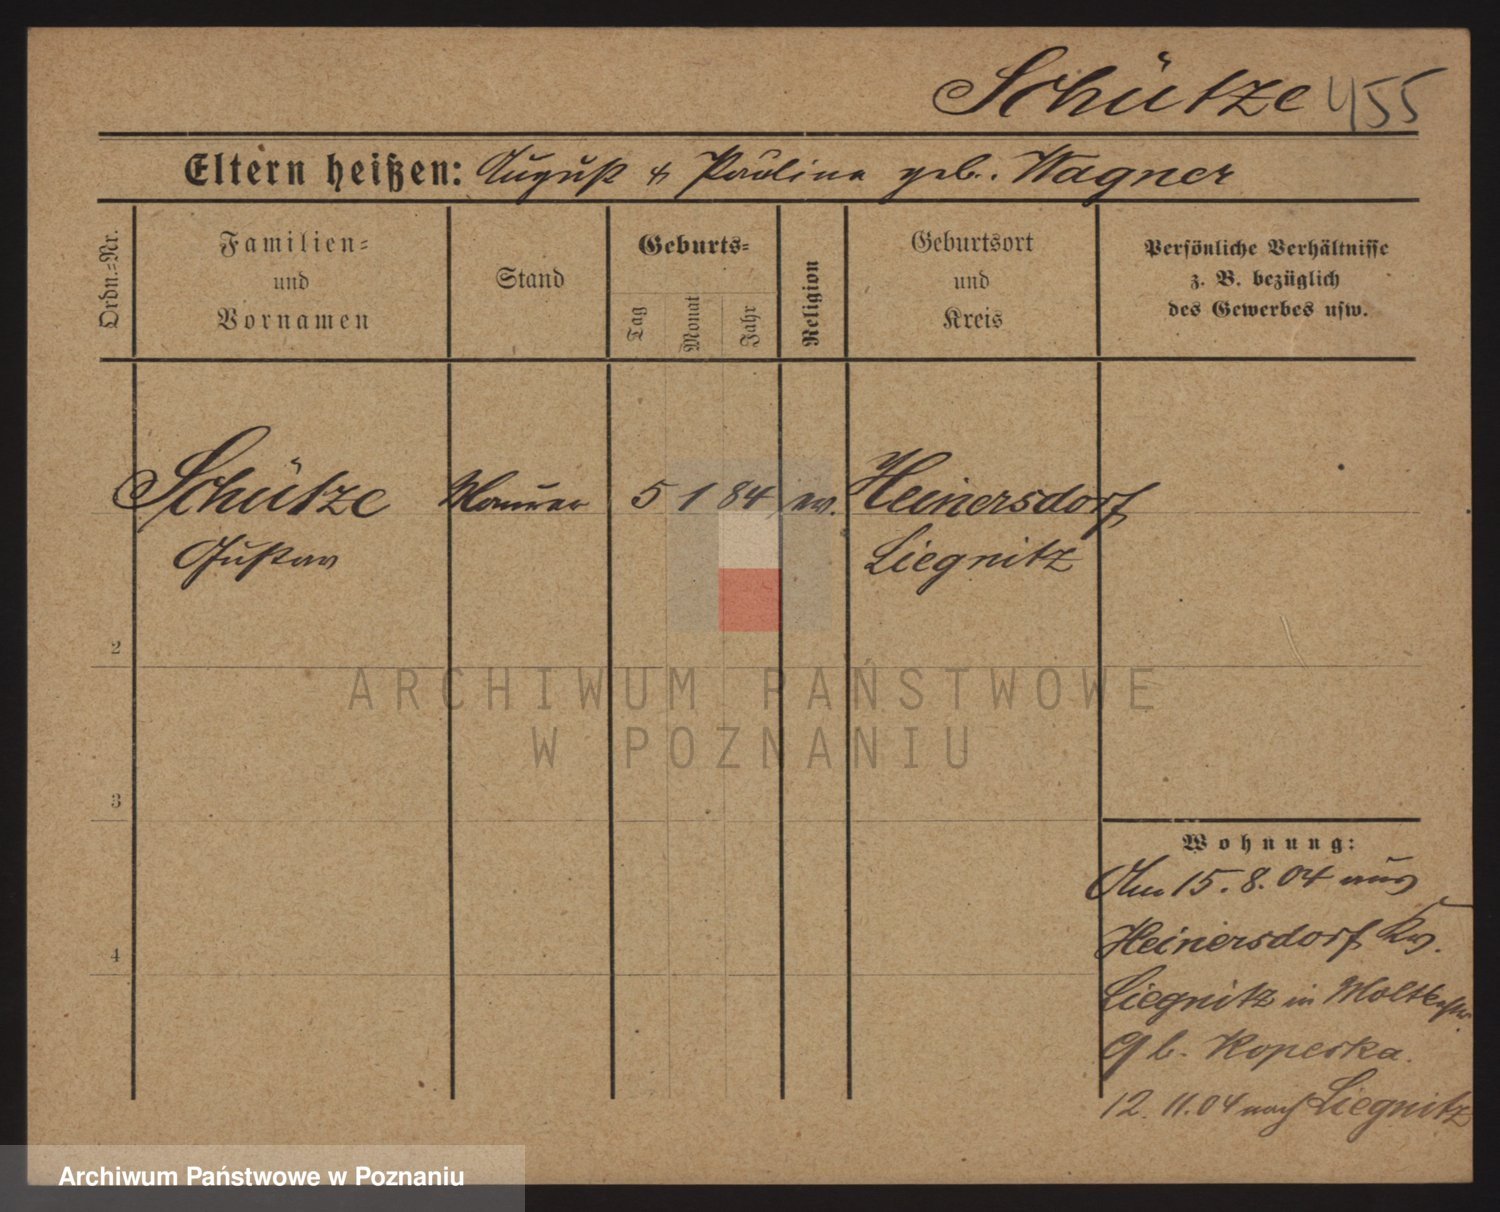 Schütze 455
Eltern heißen: August & Paulina geb. Wagner
Ordn.-Nr.
Familien-
und
Vornamen
Stand
Geburts-
Tag
Monat
Jahr
Religion
Geburtsort
und
Kreis
Persönliche Verhältnisse
z. B. bezüglich
des Gewerbes usw.
Schütze Maurer 5 1 84 ev. Heinersdorf
Gustav Liegnitz
2
3
4
Wohnung:
Am 15.8.04 aus
Heinersdorf Krs.
Liegnitz in Moltkestr.
9 b. Koperska.
12.11.04 nach Liegnitz
ARCHIWUM PAŃSTWOWE
W POZNANIU
Archiwum Państwowe w Poznaniu